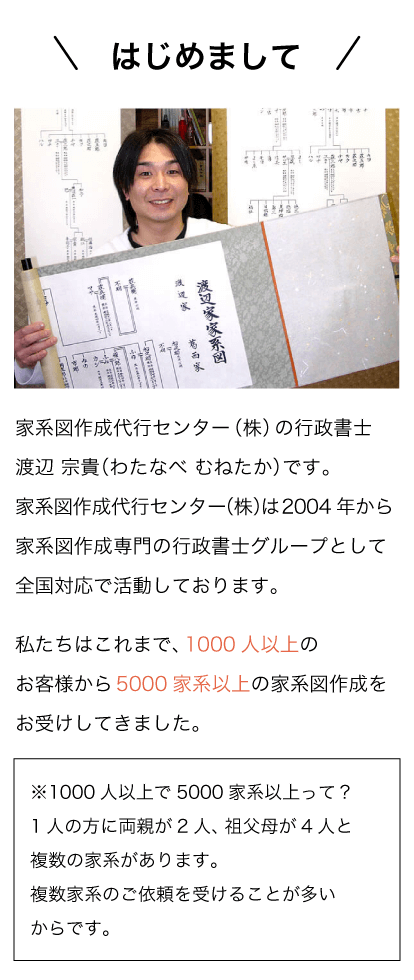 はじめまして
渡辺家家系図
渡辺家
葛西家
家系図作成代行センター（株）の行政書士
渡辺 宗貴（わたなべ むねたか）です。
家系図作成代行センター（株）は2004 年から
家系図作成専門の行政書士グループとして
全国対応で活動しております。
私たちはこれまで、1000 人以上の
お客様から 5000 家系以上の家系図作成を
お受けしてきました。
※1000 人以上で 5000 家系以上って？
1 人の方に両親が 2 人、祖父母が 4 人と
複数の家系があります。
複数家系のご依頼を受けることが多い
からです。